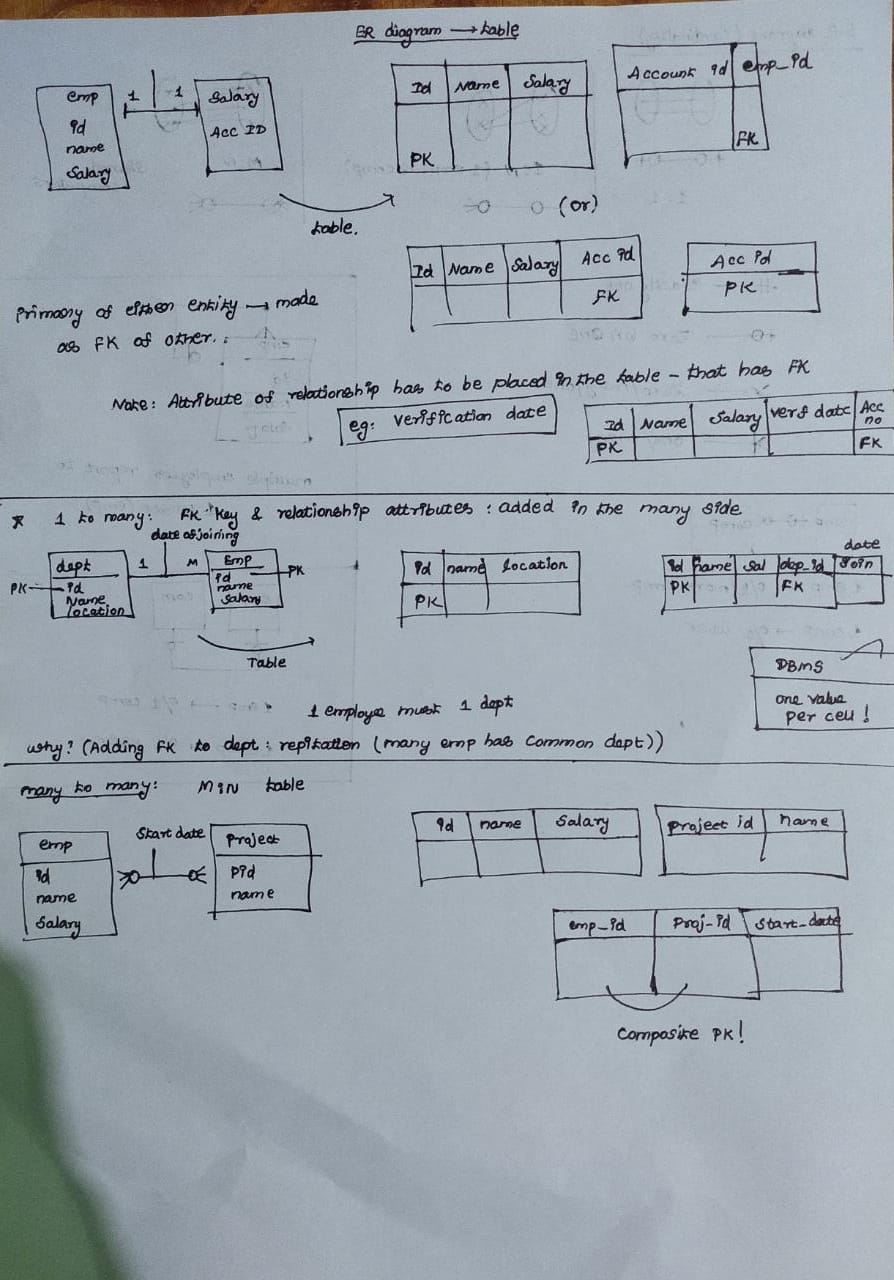 ER diagram → table
emp
id
name
Salary
1 1
Salary
Acc ID
Id Name Salary
PK
Account id emp_id
FK
table.
(or)
Id Name Salary Acc id
FK
Acc id
PK
Primary of either entity → made
as FK of other.
Note: Attribute of relationship has to be placed in the table - that has FK
eg: verification date
Id Name Salary verf date Acc no
PK FK
* 1 to many: FK key & relationship attributes : added in the many side
date of joining
dept
PK id
Name
location
1 M
Emp
id
name
salary
PK
Table
id name location
PK
id name sal dep_id date join
PK FK
DBMS
one value
per cell !
1 employe must 1 dept
why? (Adding FK to dept : repitation (many emp has common dept))
many to many: M:N table
emp
id
name
Salary
Start date
Project
pid
name
id name Salary
project id name
emp_id Proj-id start_date
Composite PK!